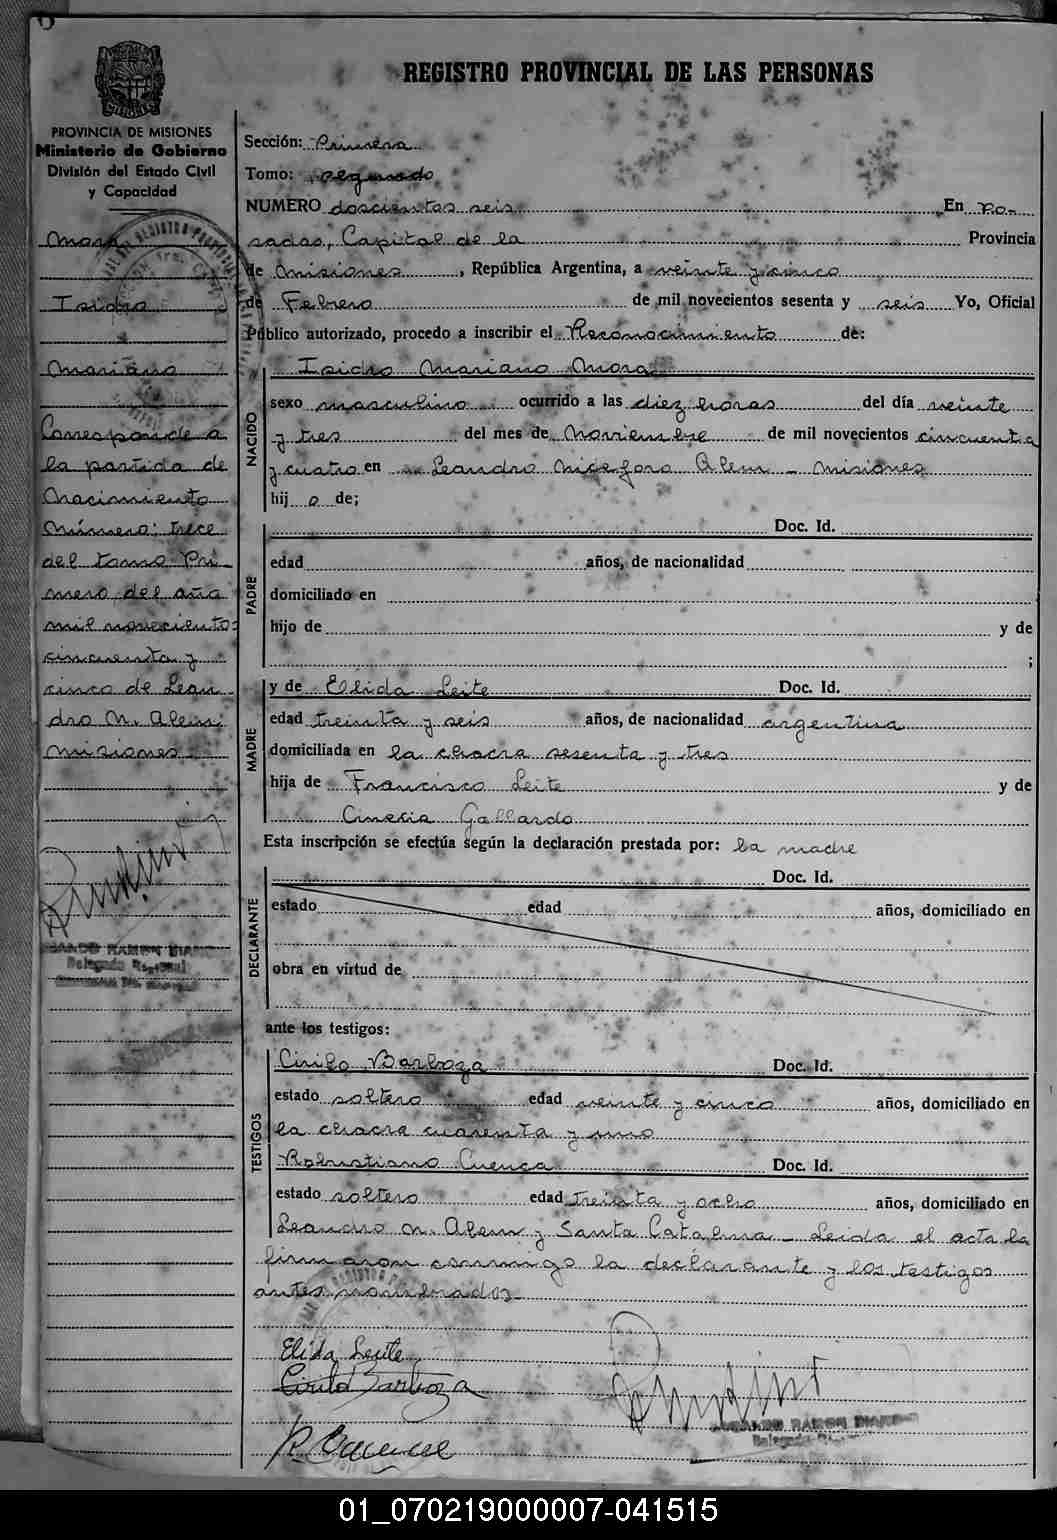 REGISTRO PROVINCIAL DE LAS PERSONAS
PROVINCIA DE MISIONES
Ministerio de Gobierno
División del Estado Civil
y Capacidad
Mora
Isidro
Mariano
Corresponde a
la partida de
Nacimiento
Número: trece
del tomo Pri
mero del año
mil novecientos
cincuenta y
cinco de Lean
dro N. Alem
Misiones
RAMON
Delegado Regional
Sección: Primera
Tomo: segundo
NUMERO doscientos seis En Po-
sadas, Capital de la Provincia
de Misiones, República Argentina, a veinte y cinco
de Febrero de mil novecientos sesenta y seis Yo, Oficial
Público autorizado, procedo a inscribir el Reconocimiento de:
NACIDO
Isidro Mariano Mora
sexo masculino ocurrido a las diez horas del día veinte
y tres del mes de Noviembre de mil novecientos cincuenta
y cuatro en Leandro Niceforo Alem - Misiones
hij o de;
PADRE
Doc. Id.
edad años, de nacionalidad
domiciliado en
hijo de y de
;
MADRE
y de Elida Leite Doc. Id.
edad treinta y seis años, de nacionalidad argentina
domiciliada en la chacra sesenta y tres
hija de Francisco Leite y de
Gallardo
Esta inscripción se efectúa según la declaración prestada por: la madre
DECLARANTE
Doc. Id.
estado edad años, domiciliado en
obra en virtud de
ante los testigos:
TESTIGOS
Cirilo Barboza Doc. Id.
estado soltero edad veinte y cinco años, domiciliado en
la chacra cuarenta y uno
Robustiano Cuenca Doc. Id.
estado soltero edad treinta y ocho años, domiciliado en
Leandro N. Alem y Santa Catalina - Leida el acta la
firmaron conmigo la declarante y los testigos
antes nombrados-
Elida Leite
Cirilo Barboza
RAMON
01_070219000007-041515